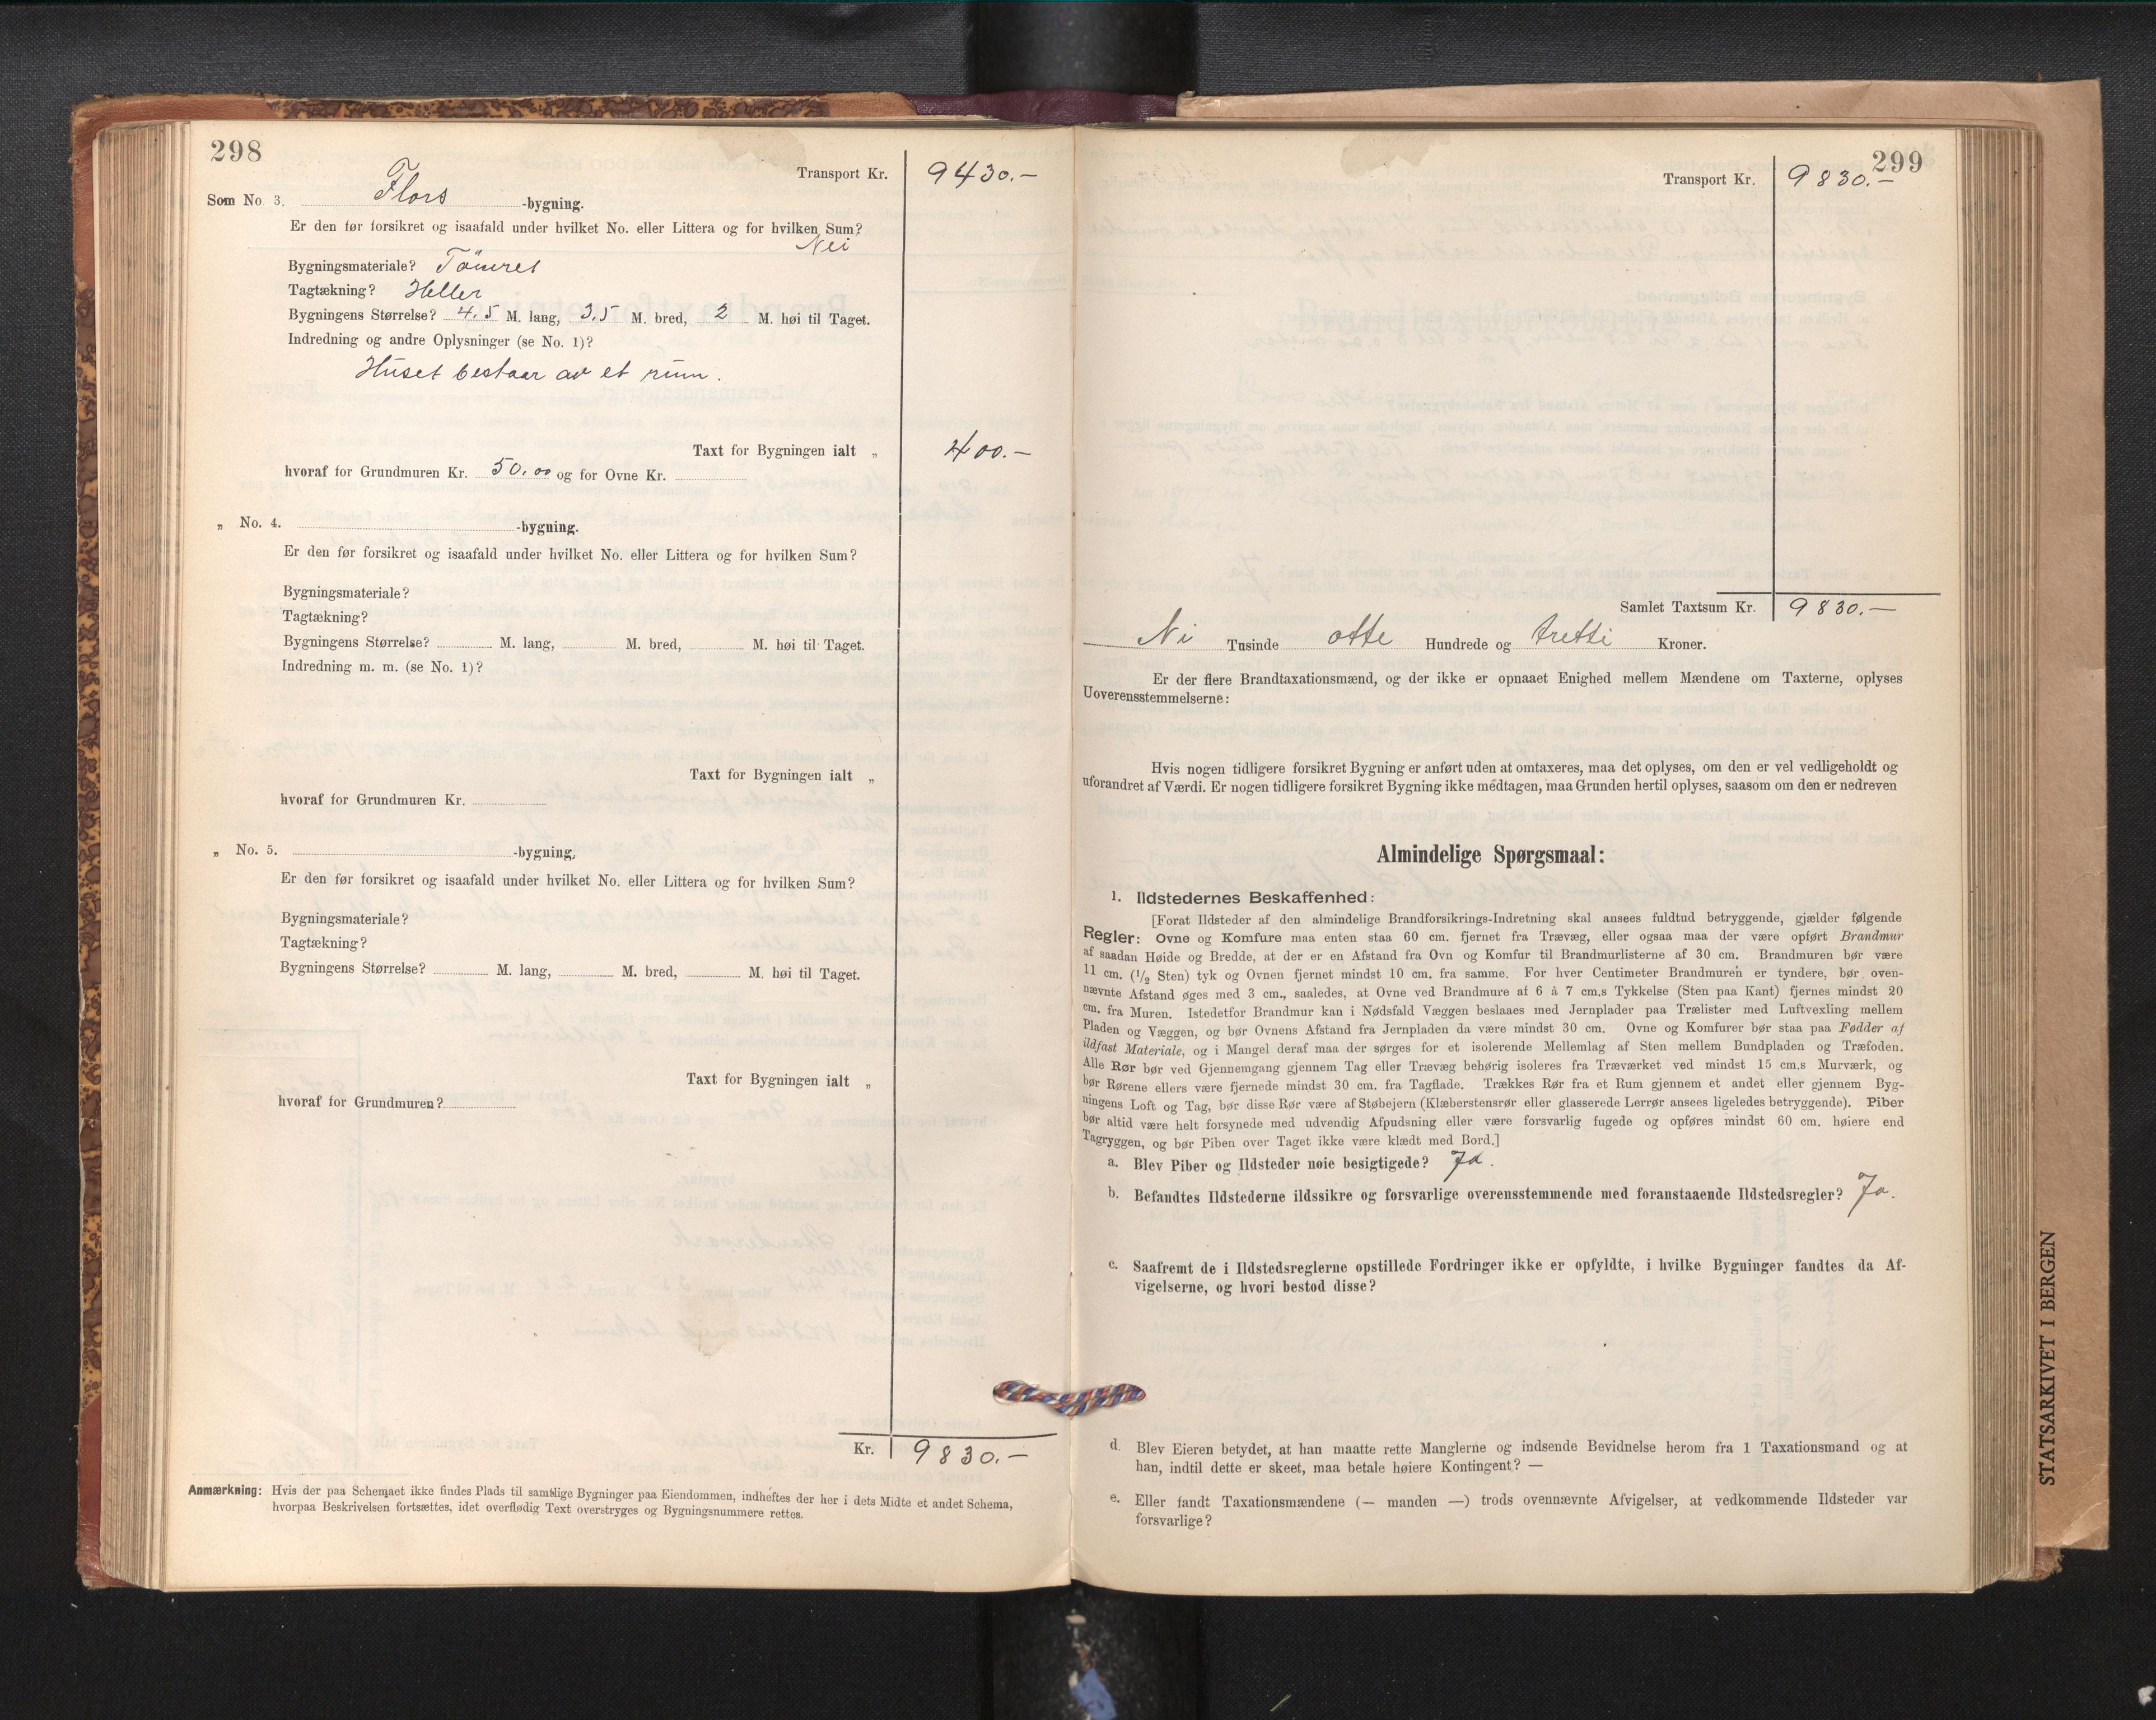 298
Transport Kr. 9430.-
Som No. 3. Flors -bygning.
Er den før forsikret og isaafald under hvilket No. eller Littera og for hvilken Sum?
Nei
Bygningsmateriale? Tömret
Tagtækning? Heller
Bygningens Størrelse? 4.5 M. lang, 3.5 M. bred, 2 M. høi til Taget.
Indredning og andre Oplysninger (se No. 1)?
Huset bestaar av et rum.
Taxt for Bygningen ialt „ 400.-
hvoraf for Grundmuren Kr. 50.00 og for Ovne Kr.
„ No. 4. -bygning.
Er den før forsikret og isaafald under hvilket No. eller Littera og for hvilken Sum?
Bygningsmateriale?
Tagtækning?
Bygningens Størrelse? M. lang, M. bred, M. høi til Taget.
Indredning m. m. (se No. 1)?
Taxt for Bygningen ialt „
hvoraf for Grundmuren Kr.
„ No. 5. -bygning,
Er den før forsikret og isaafald under hvilket No. eller Littera og for hvilken Sum?
Bygningsmateriale?
Tagtækning?
Bygningens Størrelse? M. lang, M. bred, M. høi til Taget.
Taxt for Bygningen ialt „
hvoraf for Grundmuren?
Kr. 9830.-
Anmærkning: Hvis der paa Schemaet ikke findes Plads til samtlige Bygninger paa Eiendommen, indheftes der her i dets Midte et andet Schema,
hvorpaa Beskrivelsen fortsættes, idet overflødig Text overstryges og Bygningsnummere rettes.
299
Transport Kr. 9830.-
Samlet Taxtsum Kr. 9830.-
Ni Tusinde otte Hundrede og tretti Kroner.
Er der flere Brandtaxationsmænd, og der ikke er opnaaet Enighed mellem Mændene om Taxterne, oplyses
Uoverensstemmelserne:
Hvis nogen tidligere forsikret Bygning er anført uden at omtaxeres, maa det oplyses, om den er vel vedligeholdt og
uforandret af Værdi. Er nogen tidligere forsikret Bygning ikke medtagen, maa Grunden hertil oplyses, saasom om den er nedreven
Almindelige Spørgsmaal:
1. Ildstedernes Beskaffenhed:
[Forat Ildsteder af den almindelige Brandforsikrings-Indretning skal ansees fuldtud betryggende, gjælder følgende
Regler: Ovne og Komfure maa enten staa 60 cm. fjernet fra Trævæg, eller ogsaa maa der være opført Brandmur
af saadan Høide og Bredde, at der er en Afstand fra Ovn og Komfur til Brandmurlisterne af 30 cm. Brandmuren bør være
11 cm. (1/2 Sten) tyk og Ovnen fjernet mindst 10 cm. fra samme. For hver Centimeter Brandmuren er tyndere, bør oven-
nævnte Afstand øges med 3 cm., saaledes, at Ovne ved Brandmure af 6 à 7 cm.s Tykkelse (Sten paa Kant) fjernes mindst 20
cm. fra Muren. Istedetfor Brandmur kan i Nødsfald Væggen beslaaes med Jernplader paa Trælister med Luftvexling mellem
Pladen og Væggen, og bør Ovnens Afstand fra Jernpladen da være mindst 30 cm. Ovne og Komfurer bør staa paa Fødder af
ildfast Materiale, og i Mangel deraf maa der sørges for et isolerende Mellemlag af Sten mellem Bundpladen og Træfoden.
Alle Rør bør ved Gjennemgang gjennem Tag eller Trævæg behørig isoleres fra Træværket ved mindst 15 cm.s Murværk, og
bør Rørene ellers være fjernede mindst 30 cm. fra Tagflade. Trækkes Rør fra et Rum gjennem et andet eller gjennem Byg-
ningens Loft og Tag, bør disse Rør være af Støbejern (Klæberstensrør eller glasserede Lerrør ansees ligeledes betryggende). Piber
bør altid være helt forsynede med udvendig Afpudsning eller være forsvarlig fugede og opføres mindst 60 cm. høiere end
Tagryggen, og bør Piben over Taget ikke være klædt med Bord.]
a. Blev Piber og Ildsteder nøie besigtigede? Ja.
b. Befandtes Ildstederne ildssikre og forsvarlige overensstemmende med foranstaaende Ildstedsregler? Ja.
c. Saafremt de i Ildstedsreglerne opstillede Fordringer ikke er opfyldte, i hvilke Bygninger fandtes da Af-
vigelserne, og hvori bestod disse?
d. Blev Eieren betydet, at han maatte rette Manglerne og indsende Bevidnelse herom fra 1 Taxationsmand og at
han, indtil dette er skeet, maa betale høiere Kontingent? —
e. Eller fandt Taxationsmændene (— manden —) trods ovennævnte Afvigelser, at vedkommende Ildsteder var
forsvarlige?
STATSARKIVET I BERGEN